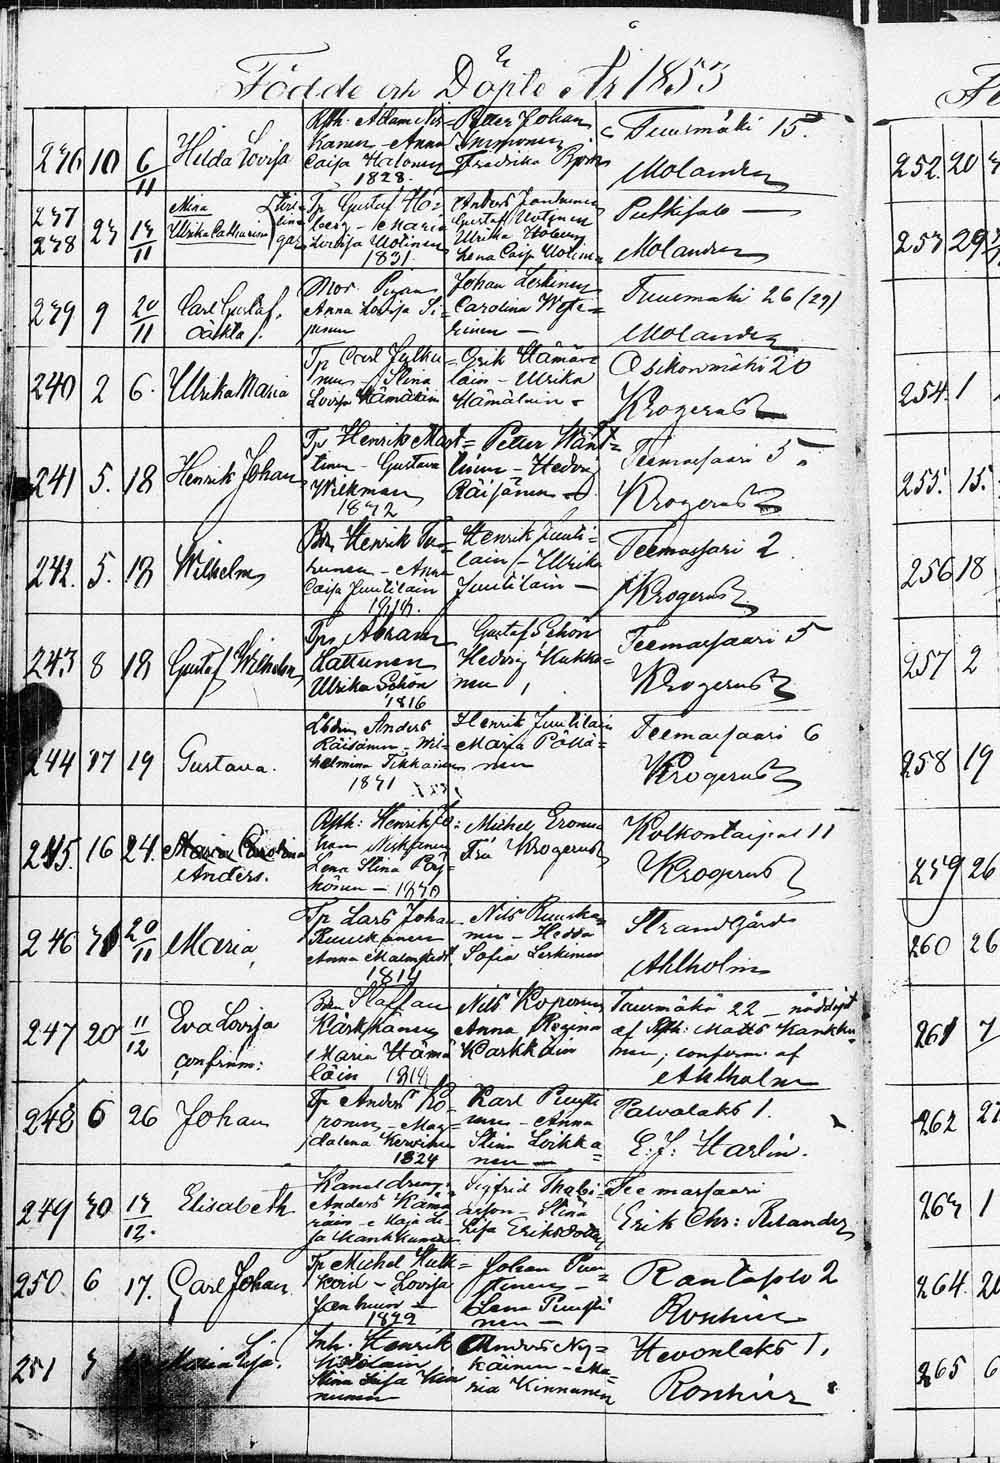 Födde och Döpte År 1853
236 10 6/11 Hilda Lovisa
Kanen - Anna
Caisa Halonen
1828.
Petter Johan
Simponen
Fredrika Björn
Tuusmäki 15.
Molander
237
238 23 13/11
Mina
Ulrika Catharina
Tp Gustaf
berg - Maria
Lovisa Uotinen
1831.
Anders
Gustaf Uotinen
Ulrika
Lena Caisa Uotinen
Putkisalo
Molander
239 9 20/11 Carl Gustaf.
oäkta.
Mor. Pigan
Anna Lovisa Si=
Johan Leskinen
Carolina
Tuusmäki 26 (29)
Molander
240 2 6. Ulrika Maria
Tp Carl Julku=
nen - Stina
Lovisa Hämäläin
Hämä=
läin - Ulrika
Hämäläin
Osikonmäki 20
Krogerus
241 5. 18 Henrik Johan
Tp Henrik Mart=
tinen - Gustava
Wickman
1832
Petter Want=
tinen - Hedvig
Räisänen
Teemassaari 5.
Krogerus
242. 5. 18 Wilhelm
Bdn Henrik Tu=
hunen - Anna
Caisa Juutilain
1818.
Henrik Juuti=
lain - Ulrika
Juutilain
Teemassari 2
Krogerus
243 8 18 Gustaf Wilhelm
Tps Abram
Hattunen
Ulrika Schön
1816
Gustaf Schön
Hedvig Kukko=
nen
Teemassaari 5
Krogerus
244 27 19 Gustava.
Anders
Räisänen - Wil=
helmina Tikkainen
1831
Henrik Juutilain
Maria Pöllä=
nen
Teemassaari 6
Krogerus
245. 16 24. Maria Carolina
Anders.
Rpth: Henrik Jo=
han Miskanen
Lena Stina
1830
Michel Eronen
Fru Krogerus
Kolkontaipal 11
Krogerus
246 31 20/11 Maria,
Tp Lars Johan
Ruuskanen
Anna Malmstedt
1814
Nils Ruuska=
nen - Hedda
Sofia Leskinen
Strandgård
Ahlholm
247 20 11/12 Eva Lovisa
confirm:
Bdn Staffan
Kärkkänen
Maria Hämä
läin 1818
Nils Koponen
Anna Regina
Karkkäin
Tuusmäki 22 - nöddöpt
af Rpth: Matts Kankku=
nen; conform. af
Ahlholm
248 6 26 Johan
Tp Anders Ko=
ponen - Mag=
dalena Kervinen
1824
Karl Puusti
nen - Anna
Stina Loikka=
nen
Palvalaks 1.
E. J. Harlin.
249 30 13/12. Elisabeth
Kanaldreng.
Anders Kämä
räin - Maja Li=
sa Kankkunen
Sigfrid Thobi=
asson - Stina
Lisa Eriksdotter
Teemassaari
Erik Chr: Relander
250. 6 17. Carl Johan
Tp Michel Kulk=
koin - Lovisa
Janhunen
1829
Johan Puu=
stinen
Lena Puusti
nen
Rantasalo 2
Ronhier
251 3 Maria Lisa.
Inh. Henrik
Stina Lisa Kin
nunen
Anders Ny=
käinen - Ma=
ria Kinnunen
Hevonlaks 1.
Ronhier
252. 20
253 29
254. 1
255. 15.
256 18
257 2
258 19
259 26
260 26
261 7
262
263 1
264.
265 6